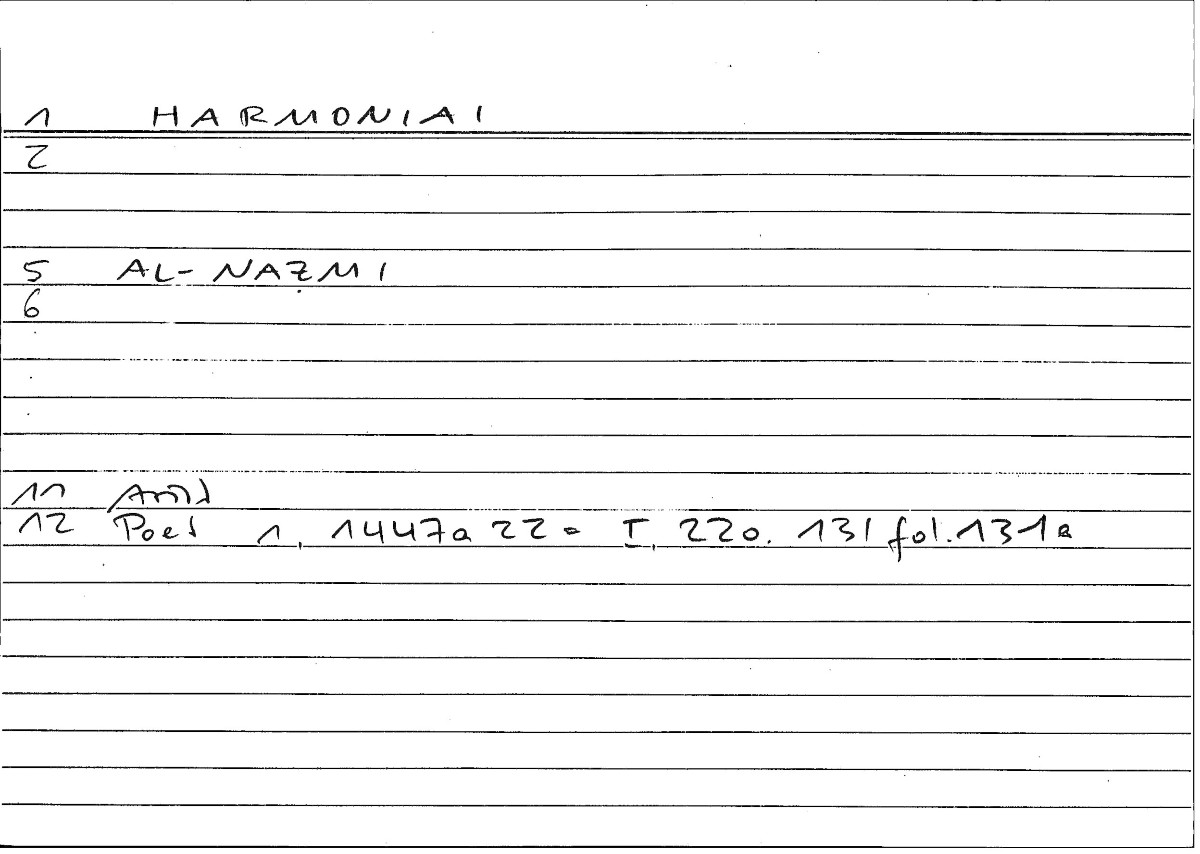 1 HARMONIAI
2
5 AL-NAẒMI
6
11 Arist
12 Poet 1, 1447a 22 = I, 220. 13 | fol. 131a